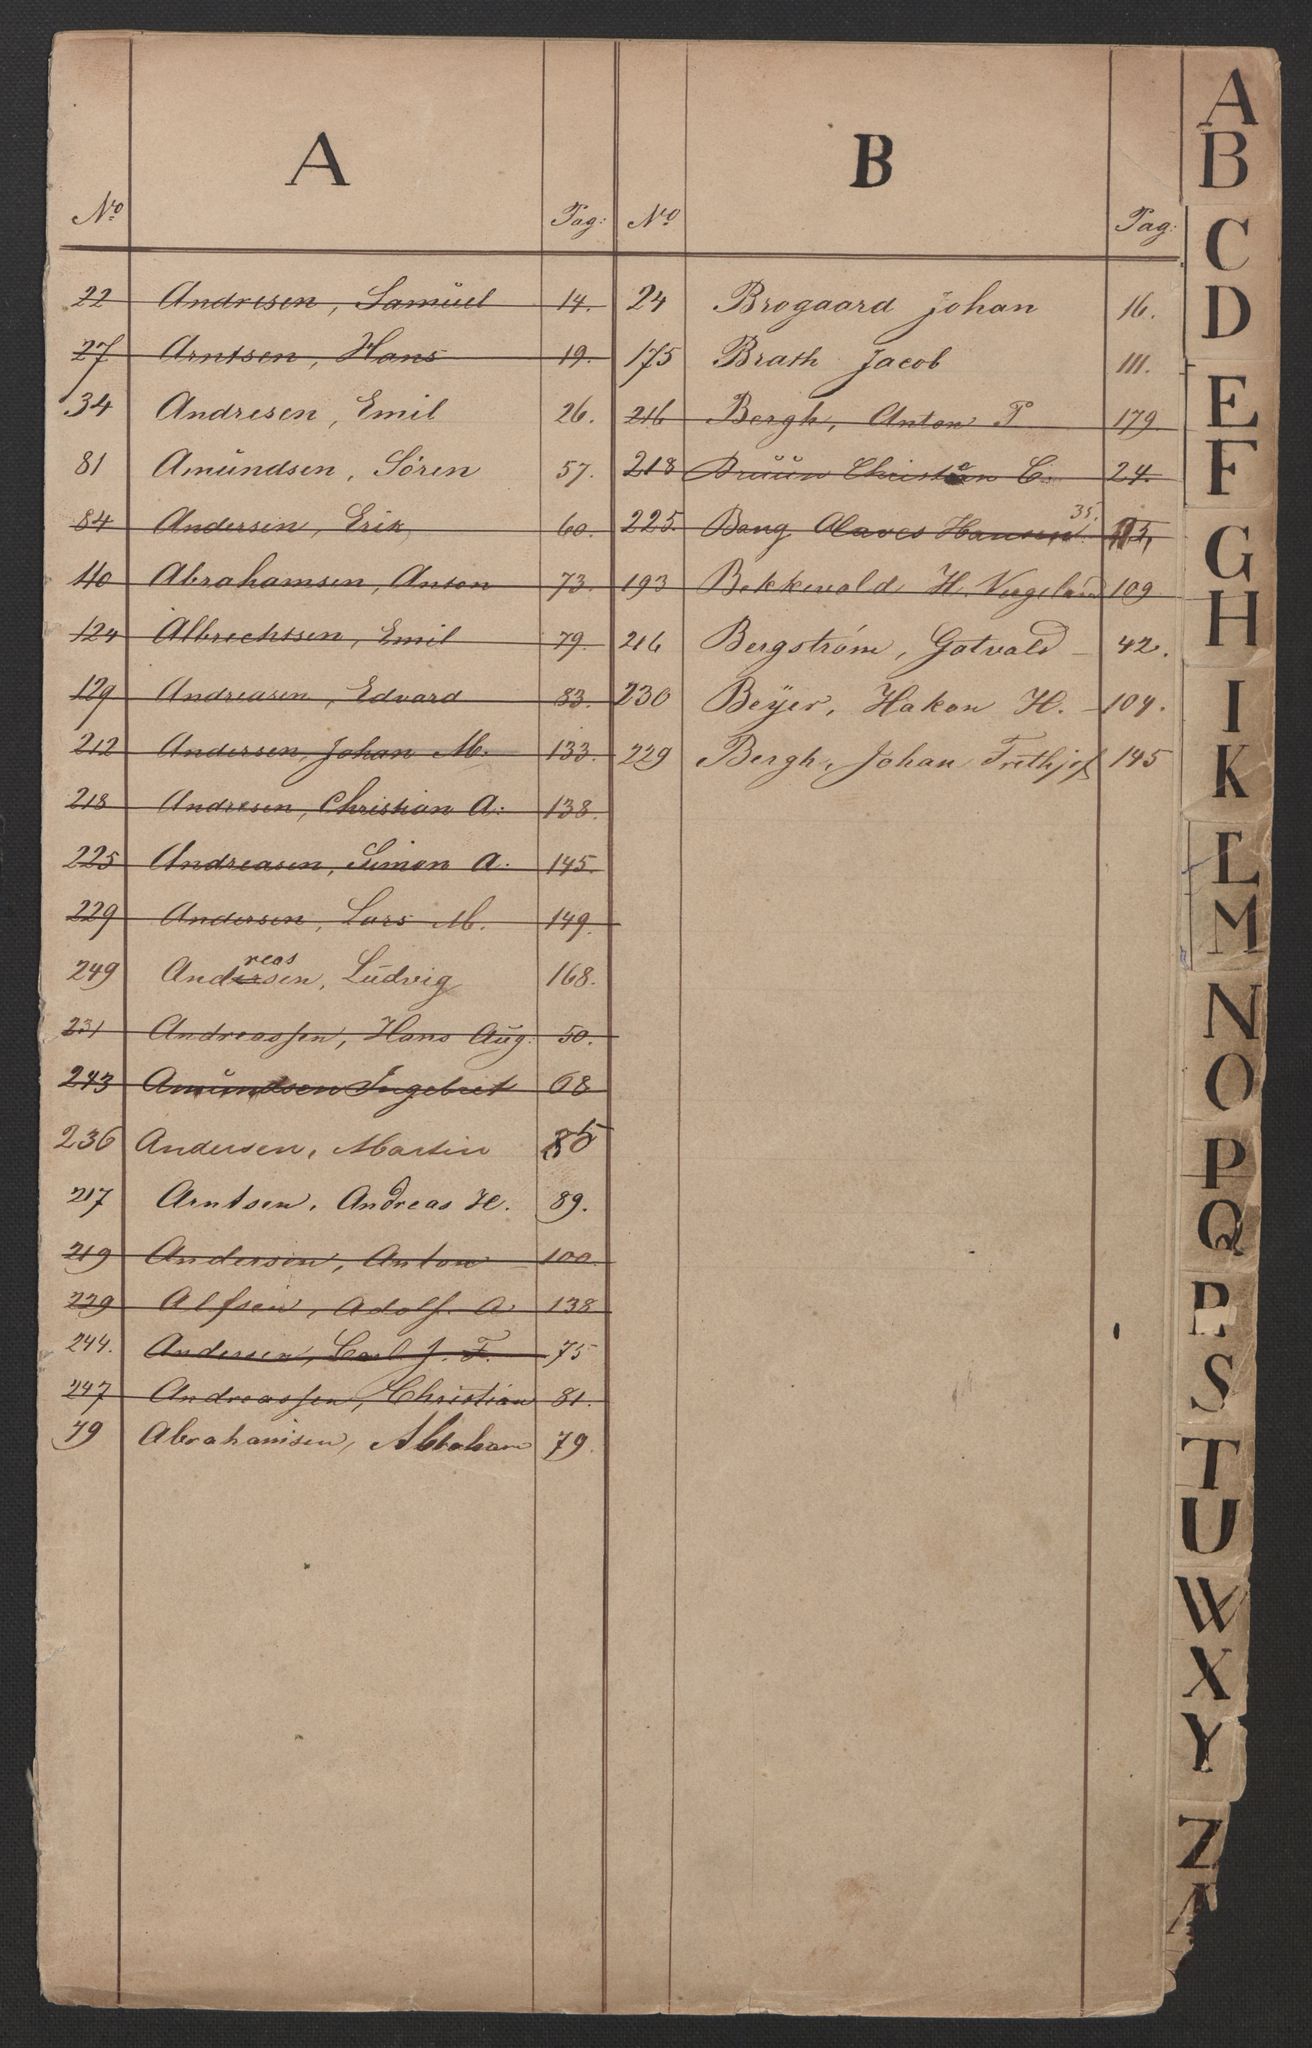 A
No Pag:
22 Andresen, Samüel 14.
27 Arntsen, Hans 19.
34 Andresen, Emil 26.
81 Amündsen, Sören 57.
84 Andersen, Erik 60.
110 Abrahamsen, Anton 73.
124 Albrechtsen, Emil 79.
129 Andreasen, Edvard 83.
212 Andersen, Johan M. 133.
218 Andresen, Christian A. 138.
225 Andreasen, Simon A. 145.
229 Andersen, Lars M. 149.
reas
249 Andersen, Ludvig 168.
231 Andreassen, Hans Aug. 50.
243 Amündsen Ingebret 68
236 Andersen, Martin 85
217 Arntsen, Andreas H. 89.
219 Andersen, Anton 100.
229 Alfsen, Adolf. A. 138
244. Andersen, Carl J. F. 75
247 Andreassen, Christian 81.
79 Abrahamsen, Abraham 79.
B
No Pag:
24 Brogaard Johan 16.
175 Brath Jacob 111.
216 Bergh, Anton P 179.
218 Brüün Christian C. 24.
35.
225. Bang Olaves Hansen
193 Bekkevold H. Vergeland 109
216 Bergström, Gotvald 42.
230 Beÿer, Hakon H. 104.
229 Bergh, Johan Frithjof 145
A
B
C
D
E
F
G
H
I
K
L
M
N
O
P
Q
R
S
T
U
W
X
Y
Z